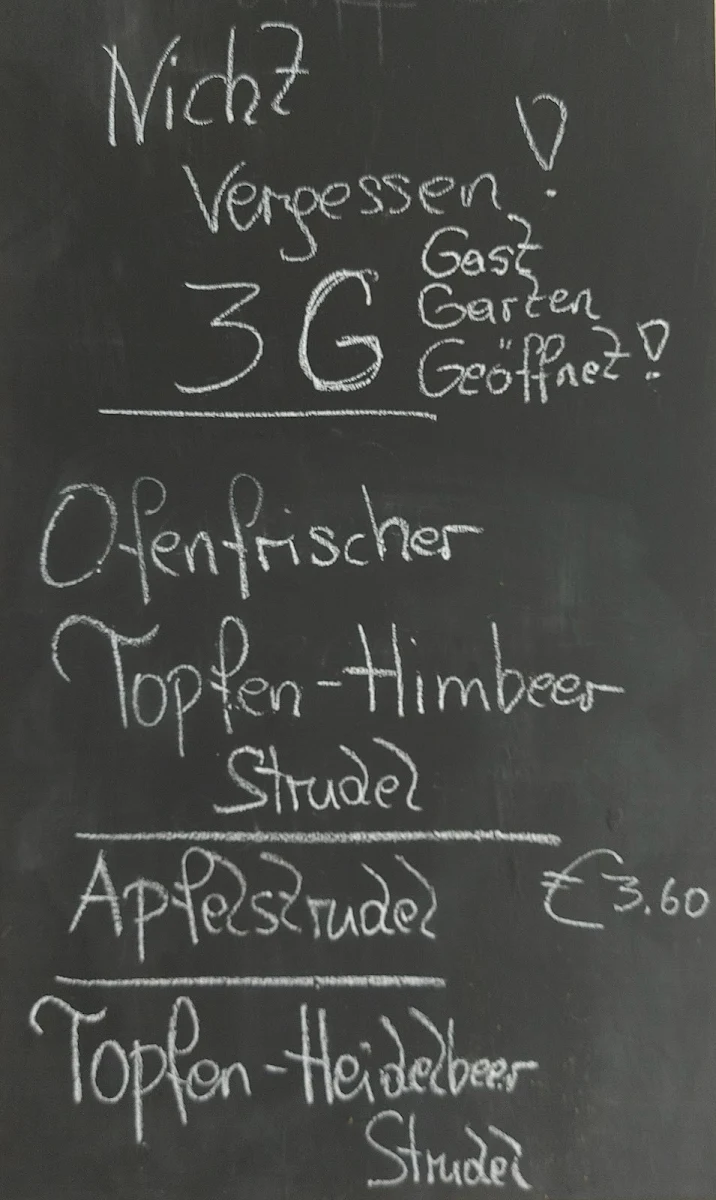 Nicht
Vergessen!
3G Gast
Garten
Geöffnet!
Ofenfrischer
Topfen-Himbeer
Strudel
Apfelstrudel €3.60
Topfen-Heidelbeer
Strudel